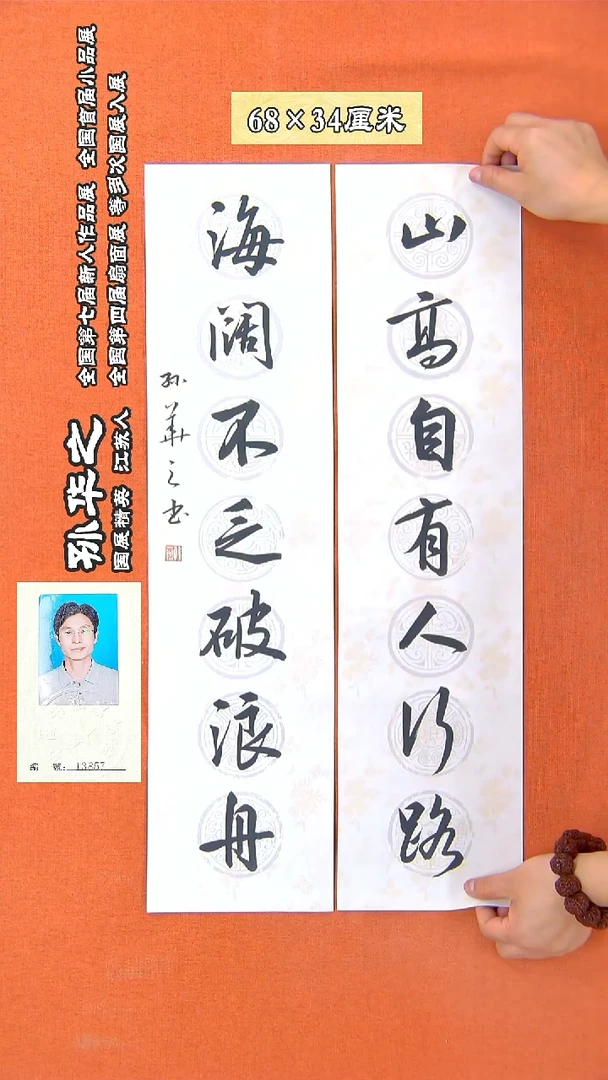 68×34厘米
山高自有人行路
海阔不乏破浪舟
孙華之书
孙华之
国展精英 江苏人
全国第七届新人作品展 全国首届小品展
全国第四届扇面展 等多次国展入展
编 號: 13857